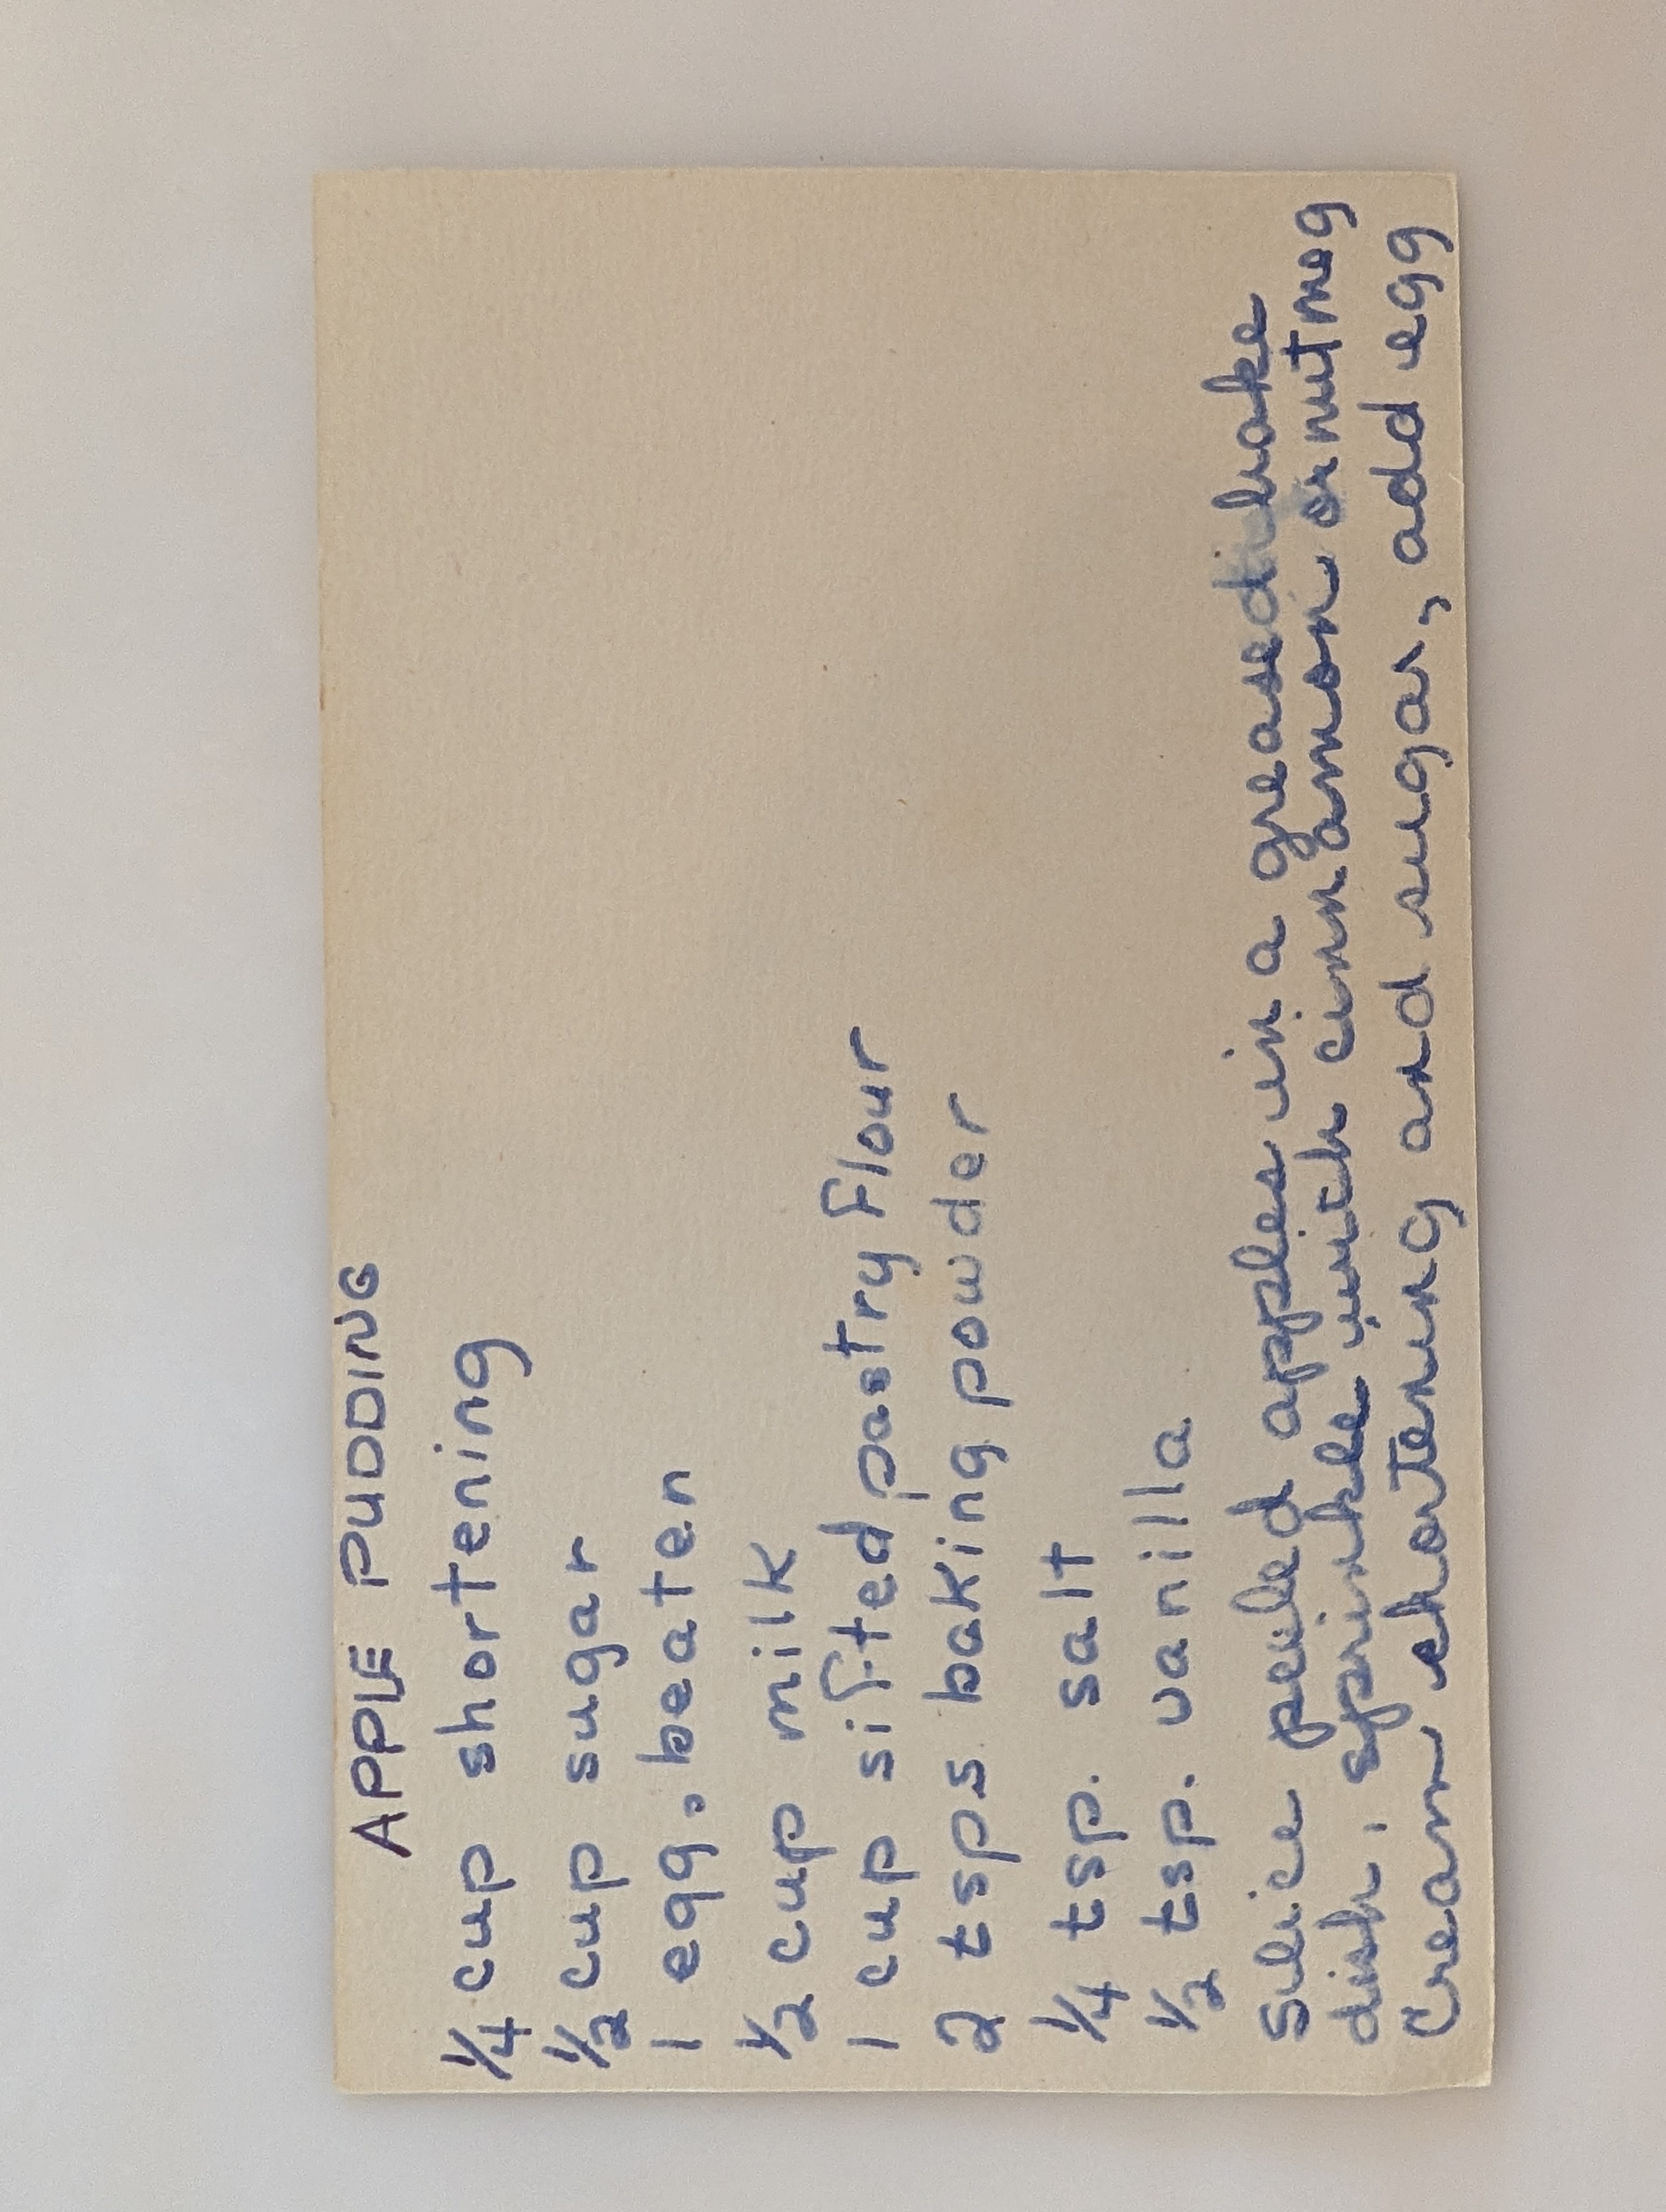 APPLE PUDDING
1/4 cup shortening
1/2 cup sugar
1 egg, beaten
1/2 cup milk
1 cup sifted pastry flour
2 tsps baking powder
1/4 tsp. salt
1/2 tsp. vanilla
Slice peeled apples in a greased bake
dish, sprinkle with cinnamon or nutmeg
Cream shortening and sugar, add egg